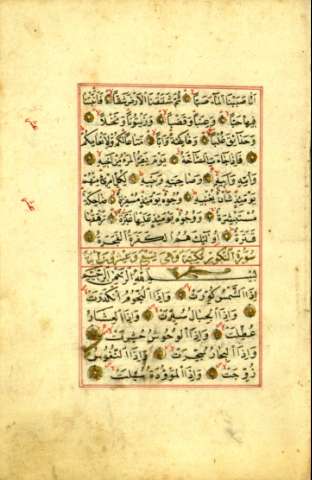 انا صببنا الماء صبا ثم شققنا الارض شقا فانبتنا
فيها حبا وعنبا وقضبا وزيتونا ونخلا
وحدائق غلبا وفاكهة وابا متاعا لكم ولانعامكم
فاذا جاءت الصاخة يوم يفر المرء من اخيه
وامه وابيه وصاحبته وبنيه لكل امرئ منهم
يومئذ شان يغنيه وجوه يومئذ مسفرة ضاحكة
مستبشرة ووجوه يومئذ عليها غبرة ترهقها
قترة اولئك هم الكفرة الفجرة
سورة التكوير مكية وهي تسع وعشرون اية
بسم الله الرحمن الرحيم
اذا الشمس كورت واذا النجوم انكدرت
واذا الجبال سيرت واذا العشار
عطلت واذا الوحوش حشرت
واذا البحار سجرت واذا النفوس
زوجت واذا الموؤدة سئلت